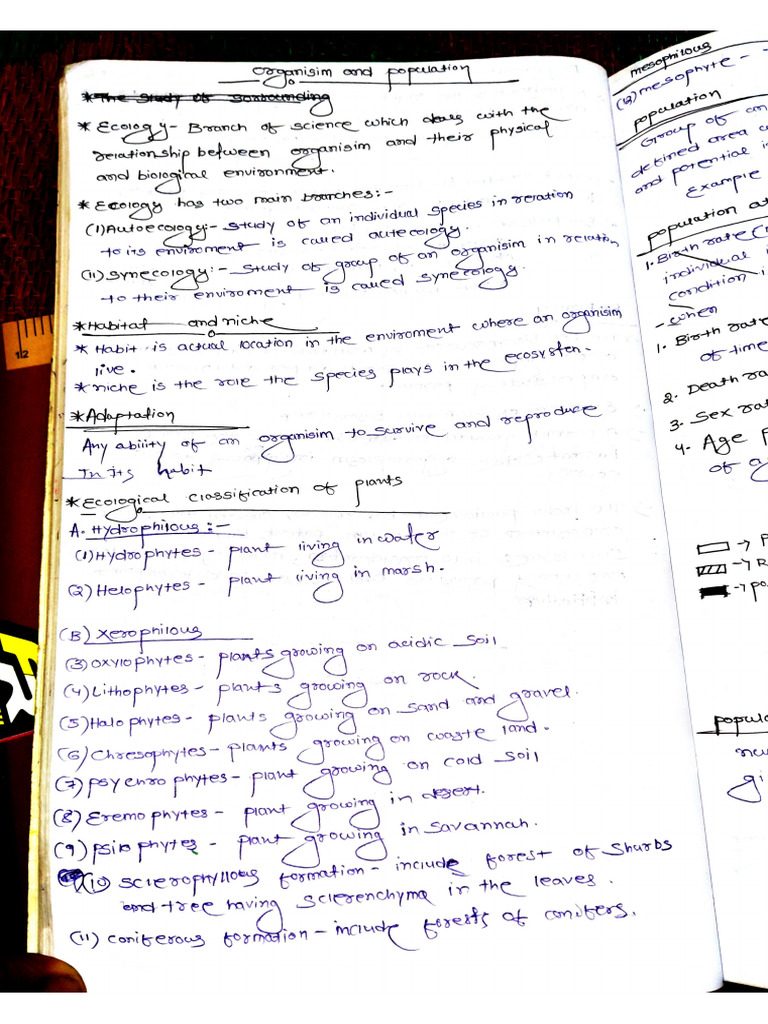 organisim and population
* The Study of sorrounding
* Ecology - Branch of science which deals with the
relationship between organisim and their physical
and biological environment.
* Ecology has two main branches:-
(I) Autoecology:- study of an individual species in relation
to its enviroment is called autecology.
(II) Synecology:- study of group of an organisim in relation
to their enviroment is called synecology.
* Habitat and niche
* Habit is actual location in the enviroment where an organisim
live.
* niche is the role the species plays in the ecosysten.
* Adaptation
Any ability of an organisim to survive and reproduce
In its habit
* Ecological classification of plants
A. Hydrophilous:-
(1) Hydrophytes - plant living in water
(2) Helophytes - plant living in marsh.
(B) Xerophilous
(3) oxylophytes - plants growing on acidic soil
(4) Lithophytes - plants growing on rock.
(5) Halophytes - plants growing on sand and gravel.
(6) Chresophytes - plants growing on waste land.
(7) psychrophytes - plant growing on cold soil
(8) Eremophytes - plant growing in desert.
(9) psilophytes - plant growing in savannah.
(10) sclerophyllous formation - include forest of Shurbs
and tree having sclerenchyma in the leaves.
(11) coniferous formation - include forests of conifers.
mesophilous
mesophyte -
population
Group of an
defined area
and potential
Example
population
1. Birth rate
individual
condition
- when
1. Birth rate
of time
2. Death
3. Sex
4. Age
of